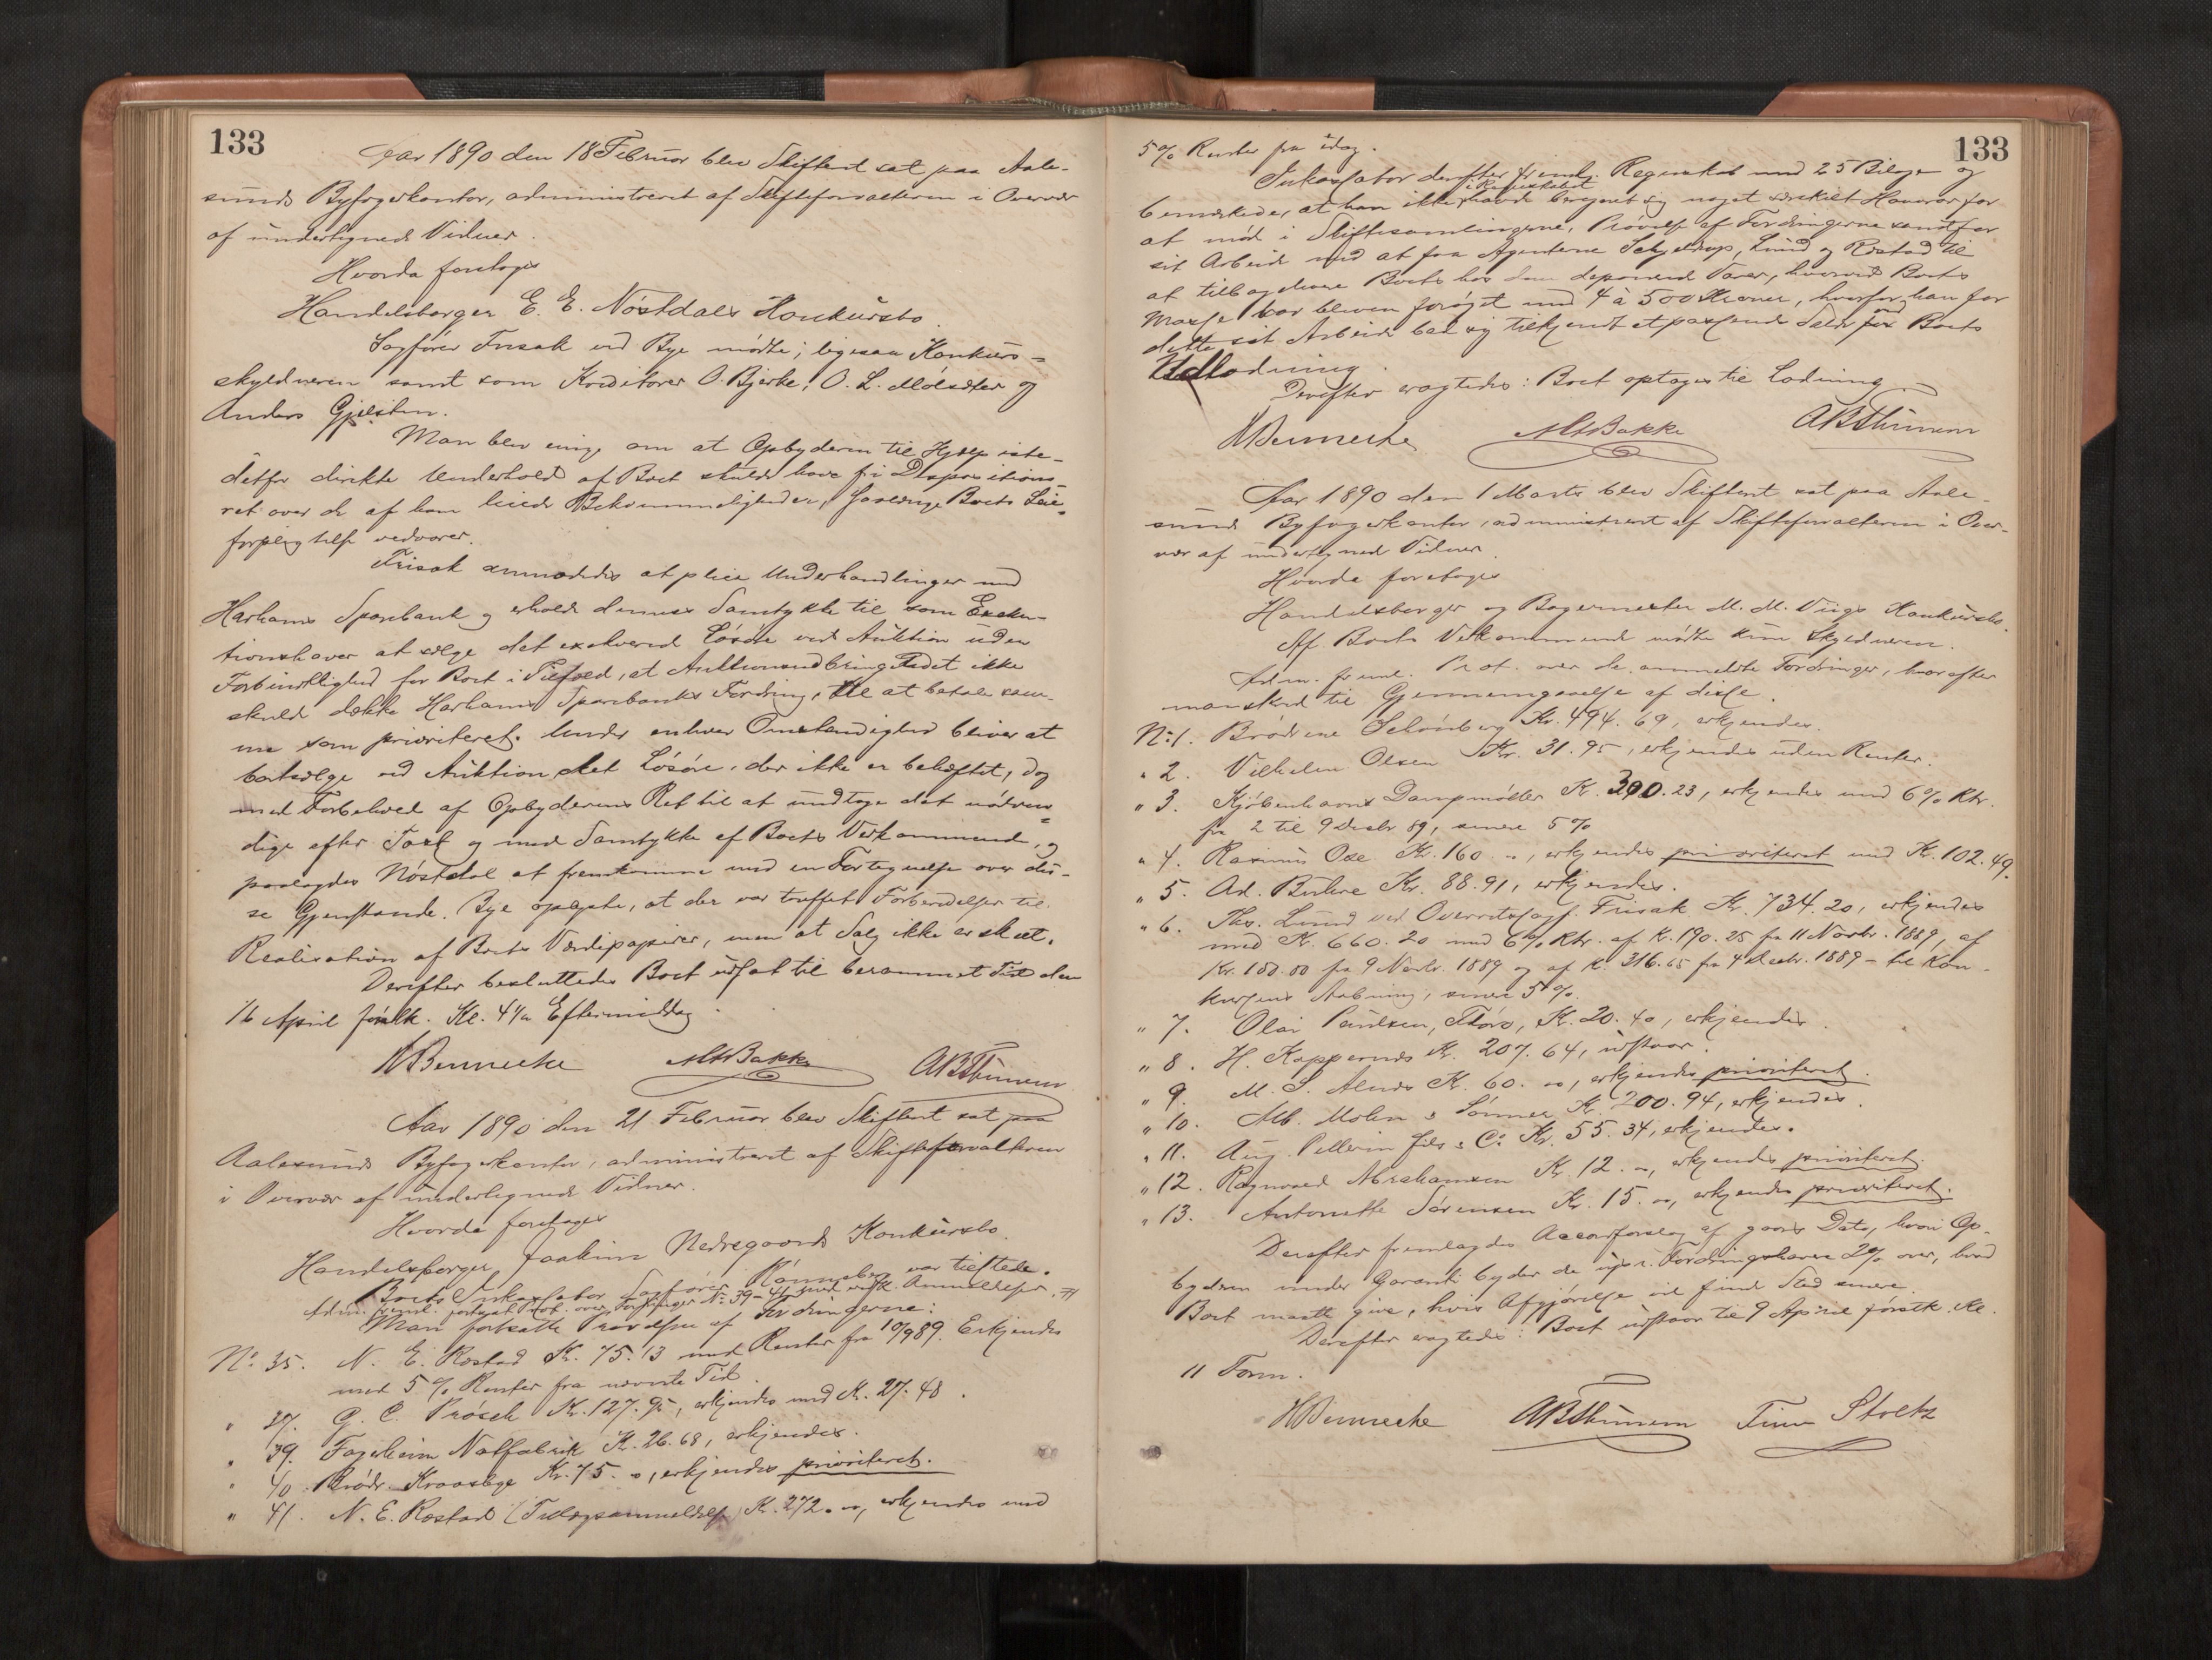 133
Aar 1890 den 18 Februar blev Skifteret sat paa Aale-
sunds Byfogedkontor, administreret af Skifteforvalteren i Overvær
af undertegnede Vidner.
Hvorda foretoges
Handelsborger E. E. Nøstdals Konkursbo.
Sagfører Frisak ved Bye mødte; ligesaa Konkurs-
skyldneren samt som Kreditorer O. Bjerke, O. L. Molsæter og
Anders Gjelsten.
Man blev enige om at Opbyderen til Hjælp iste-
detfor direkte Underhold af Boet skulde have fri Dispositions-
ret over de af ham leiede Bekvemmeligheder, saalænge Boets Leie-
forpligtelse vedvarer.
Frisak anmodedes at pleie Underhandlinger med
Harhams Sparebank og erholde dennes Samtykke til som Exeku-
tionshaver at sælge det exekverede Løsøre ved Auktion uden
Forbindtlighed for Boet i Tilfæld, at Auktionsudbringendet ikke
skulde dække Harhams Sparebanks Fordring, til at betale sam-
me som prioriteret. Under enhver Omstændighed bliver at
bortsælge ved Auktion det Løsøre, der ikke er behæftet, dog
med Forbehold af Opbyderens Ret til at undtage det nødven-
dige efter Taxt og med Samtykke af Boets Vedkommende, og
paalagdes Nøstdal at fremkomme med en Fortegnelse over dis-
se Gjenstande. Bye oplyste, at der var truffet Forberedelser til
Realisation af Boets Værdipapirer, men at Salg ikke er skeet.
Derefter besluttedes Boet udsat til berammet Tid den
16 April førstk. Kl. 4½ Eftermiddag.
HBennecke MABakke ABThunem
Aar 1890 den 21 Februar blev Skifteret sat paa
Aalesunds Byfogedkontor, administreret af Skifteforvalteren
i Overvær af undertegnede Vidner.
Hvorda foretoges
Handelsborger Joakim Nedregaards Konkursbo.
Boets Inkassator Sagfører Rønneberg var tilstede.
Adm. freml. fortsat Prot. over Fordringer No 39-41 med Anmeldelser,
Man fortsatte Prøvelsen af Fordringerne:
No 35. N. E. Rostad Kr. 75.13 med Renter fra 10/9 89. Erkjendes
med 5 % Renter fra nævnte Tid.
" 37. G. C. Prøsch Kr. 127.95, erkjendes med Kr. 27.48.
" 39. Fagerheim Notfabrik Kr. 26.68, erkjendes.
" 40. Brødr. Kraasbye Kr. 75. -, erkjendes prioriteret.
" 41. N. E. Rostad (Tillægsanmeldelse) Kr. 272. -, erkjendes med
133
5 % Renter fra idag.
Inkassator derefter fremlg. Regnskab med 25 Bilage og
i Regnskabet
bemærkede, at han ikke havde beregnet sig noget særskilt Honorar for
at møde i Skiftesamlingerne, Prøvelse af Fordringerne samt for
sit Arbeide med at faa Agenterne Schjelderup, Lund og Rostad til
at tilbagelevere Boets hos dem deponerede Varer, hvorved Boets
Masse var bleven forøget med 4 à 500 Kroner, hvorfor han for
dette sit Arbeide bad sig tilkjendt et passende Salær ved Boets
Udlodning.
Derefter eragtedes: Boet optages til Lodning.
HBennecke MABakke ABThunem
Aar 1890 den 1 Marts blev Skifteret sat paa Aale-
sunds Byfogedkontor, administreret af Skifteforvalteren i Over-
vær af undertegnede Vidner.
Hvorda foretoges
Handelsborger og Bagermester M. M. Viigs Konkursbo.
Af Boets Vedkommende mødte kun Skyldneren.
Adm. freml. Prot. over de anmeldte Fordringer, hvorefter
man skred til Gjennemgaaelse af disse.
No: 1. Brødrene Schønberg Kr. 494.69, erkjendes.
" 2. Vilhelm Olsen Kr. 31.95, erkjendes uden Renter.
" 3. Kjøbenhavns Dampmøller Kr. 390.23, erkjendes med 6 % Rtr.
fra 2 til 9 Decbr 89, senere 5 %
" 4. Rasmus Oxe Kr. 160 -, erkjendes prioriteret med Kr. 102.49.
" 5. Ad. Buhre Kr. 88.91, erkjendes.
" 6. Thr. Lund ved Overretssagf. Frisak Kr. 734.20, erkjendes
med Kr. 660.20 med 6 % Rtr. af Kr. 190.25 fra 11 Novbr. 1889, af
Kr. 180.80 fra 9 Novbr. 1889 og af Kr. 316.65 fra 4 Decbr. 1889 - til Kon-
kursens Aabning, senere 5 %.
" 7. Olai Paulsen, Florø, Kr. 20.40, erkjendes.
" 8. H. Koppernæs Kr. 207.64, udstaar.
" 9. M. S. Alnes Kr. 60. -, erkjendes prioriteret.
" 10. Alb. Mohn & Sønner Kr. 200.94, erkjendes.
" 11. Aug. Pellerin fils & Co Kr. 55.34, erkjendes.
" 12. Ragnvald Abrahamsen Kr. 12. -, erkjendes prioriteret.
" 13. Antonette Sørensen Kr. 15. -, erkjendes prioriteret.
Derefter fremlagdes Accordforslag af gaars Dato, hvori Op-
byderen under Garanti byder de upr. Fordringshavere 2 % over, hvad
Boet maatte give, hvis Afgjørelse vil finde Sted senere.
Derefter eragtedes: Boet udstaar til 9 April førstk. Kl.
11 Form.
HBennecke ABThunem Stoltz